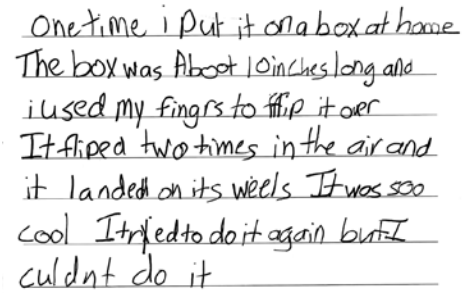 One time i put it on a box at home
The box was Aboot 10 inches long and
i used my fingrs to flip it over
It fliped two times in the air and
it landed on its weels It was soo
cool I tryied to do it again but I
culdnt do it